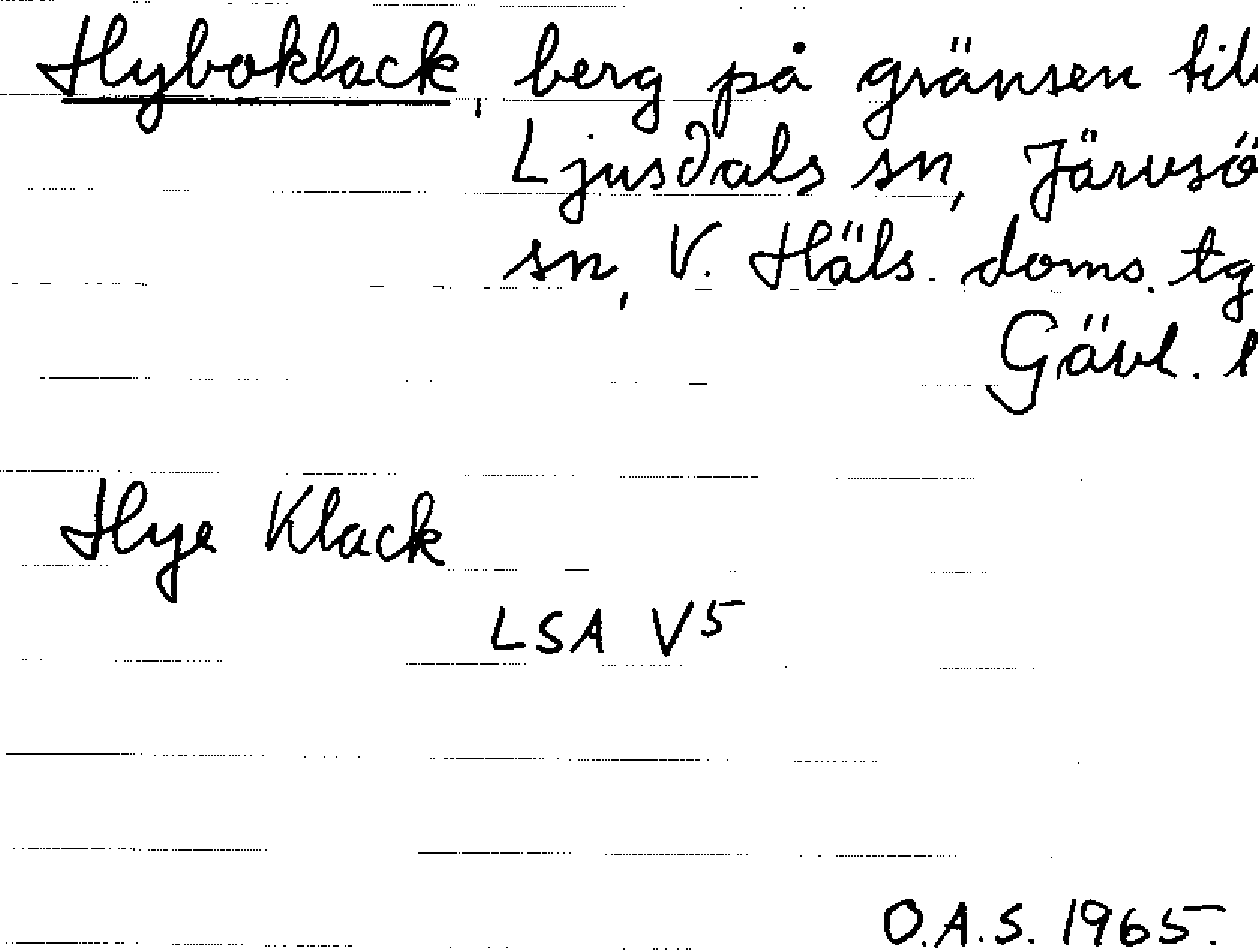 Hyboklack, berg på gränsen till
Ljusdals sn, Järvsö
sn, V. Häls. doms. tg
Gävl. l
Hye Klack
LSA V5
O.A.S. 1965.